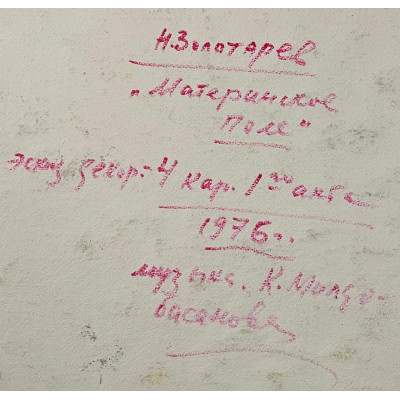 Н. Золотарев
„Материнское
Поле"
эскиз декор-4 кар. 1го акта
1976г.
музыка. К. Молдо-
басанова